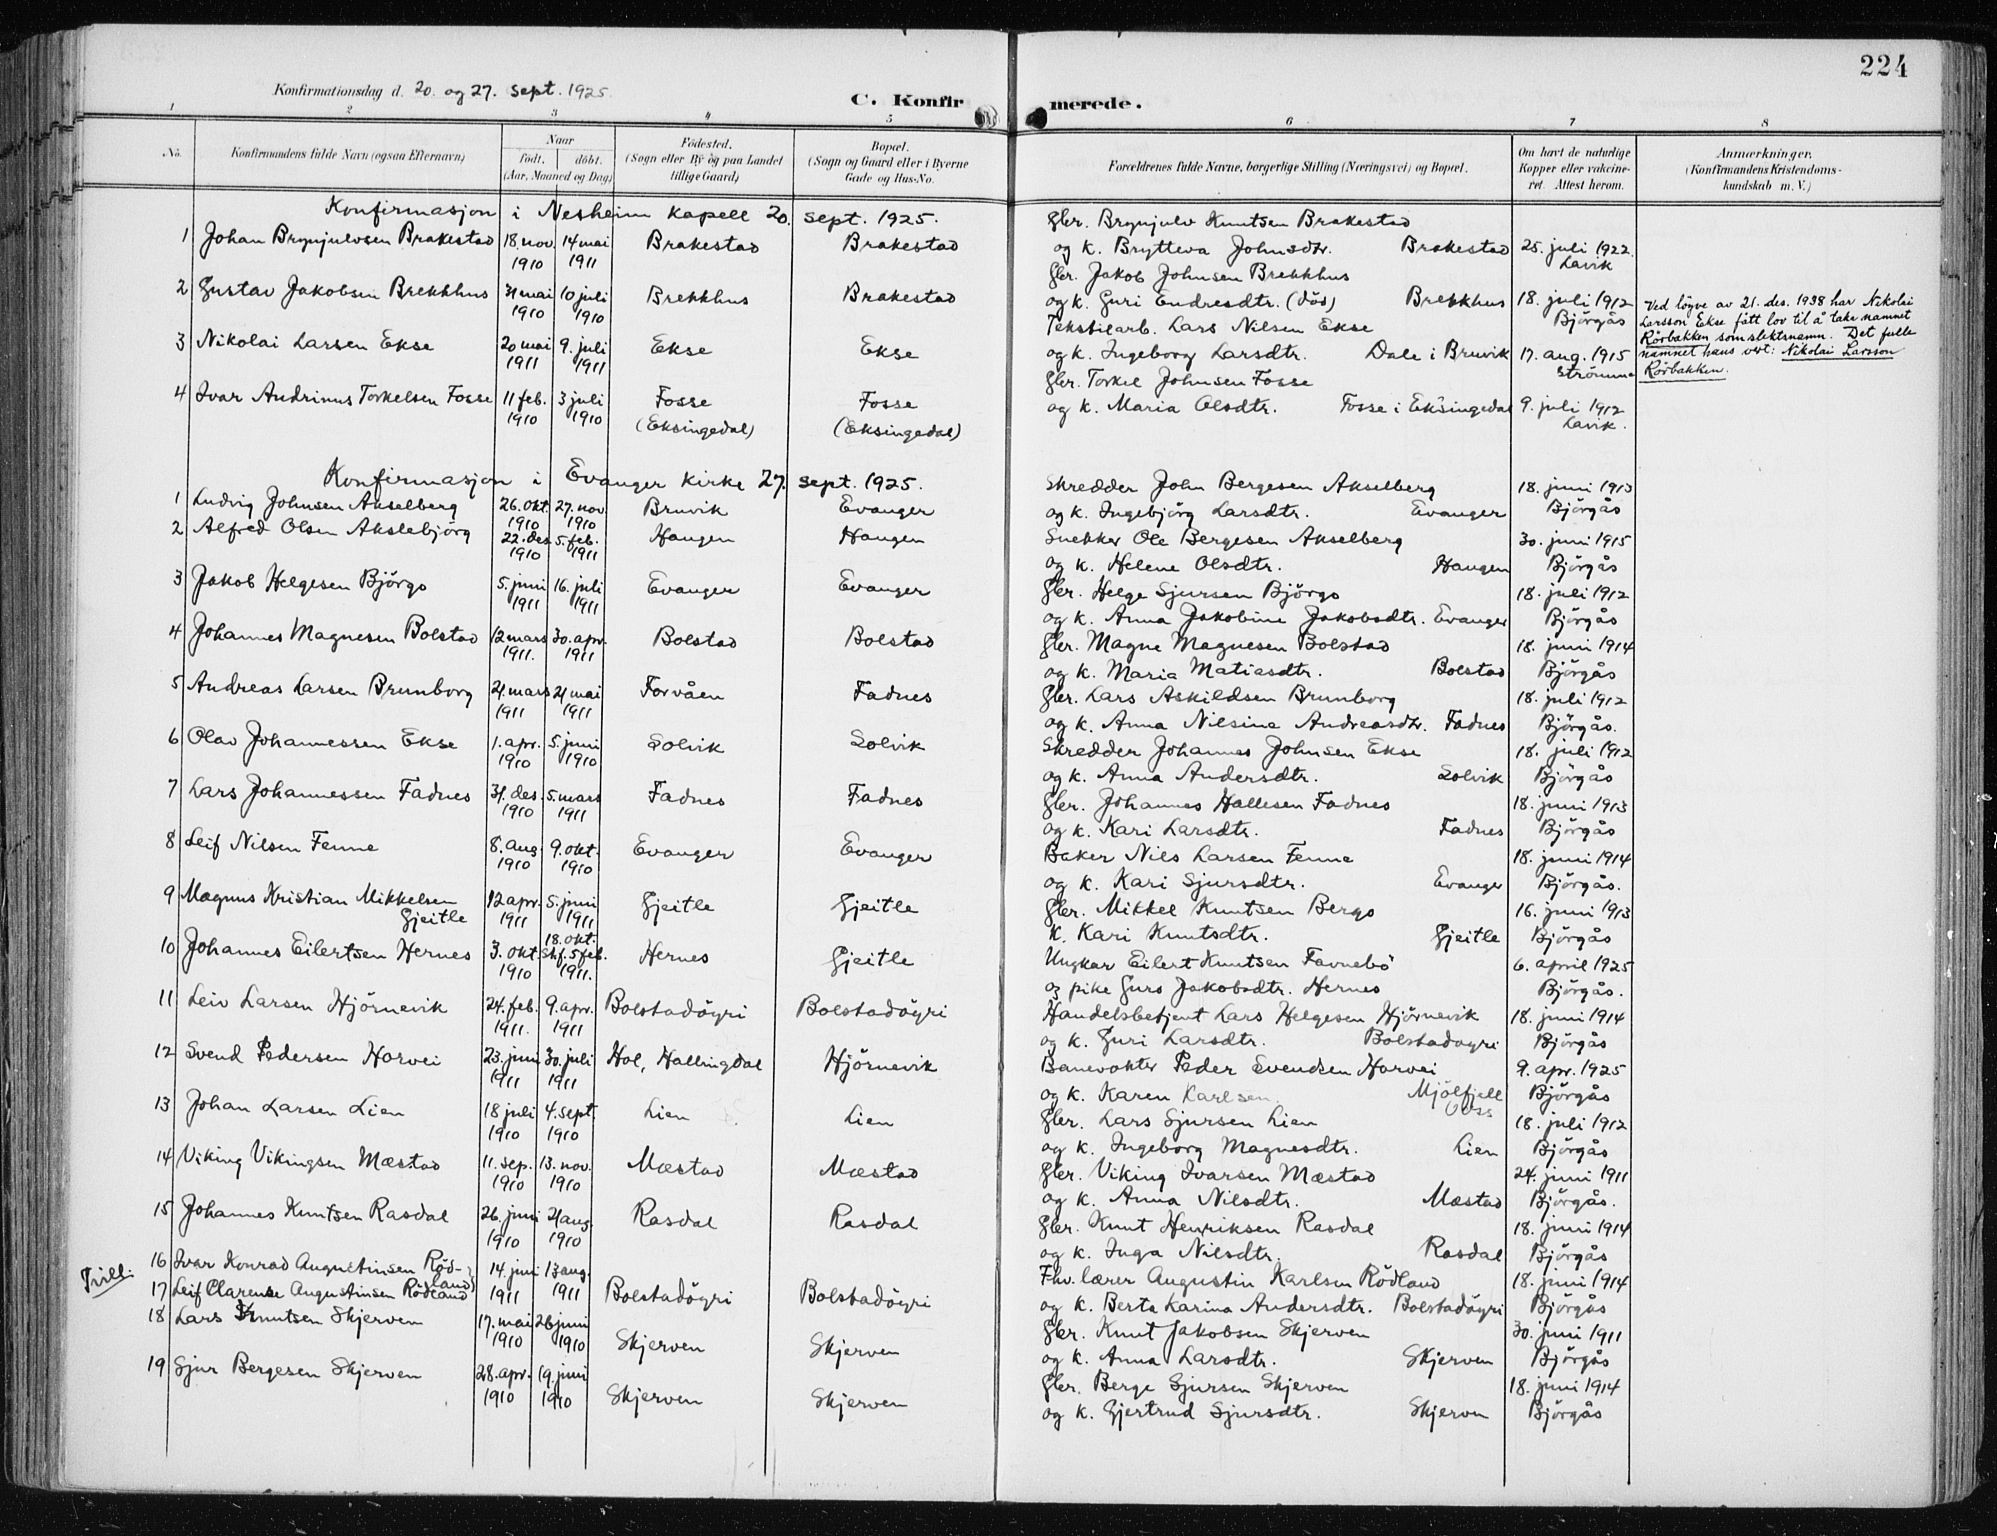 224
Konfirmationsdag d. 20. og 27. sept. 1925.
C. Konfirmerede.
1 2 3 4 5 6 7 8
No. Konfirmandens fulde Navn (ogsaa Efternavn) Naar født. døbt. (Aar, Maaned og Dag) Fødested. (Sogn eller By og paa Landet tillige Gaard) Bopæl. (Sogn og Gaard eller i Byerne Gade og Hus-No. Forældrenes fulde Navne, borgerlige Stilling (Næringsvei) og Bopæl. Om havt de naturlige Kopper eller vakcineret. Attest herom. Anmærkninger. (Konfirmandens Kristendomskundskab m. V.)
Konfirmasjon i Nesheim kapell 20. sept. 1925.
1 Johan Brynjulvsen Brakestad 18. nov. 1910 14 mai 1911 Brakestad Brakestad Gbr. Brynjulv Knutsen Brakestad
og k. Brytteva Johnsdtr. Brakestad 25. juli 1922. Lavik
2 Gustav Jakobsen Brekkhus 31 mai 1910 10 juli 1910 Brekkhus Brakestad Gbr. Jakob Johnsen Brekkhus
og k. Guri Endresdtr. (død) Brekkhus 18. juli 1912 Bjørgås
3 Nikolai Larsen Ekse 20 mai 1911 9. juli 1911 Ekse Ekse Tekstilarb. Lars Nilsen Ekse
og k. Ingeborg Larsdtr. Dale i Bruvik 17. aug. 1915 Strømme
Ved løyve av 21. des. 1938 har Nikolai
Larsson Ekse fått lov til å take namnet
Rörbakken som slektsnamn. Det fulle
namnet hans vert: Nikolai Larsson
Rörbakken.
4 Ivar Andrinus Torkelsen Fosse 11 feb. 1910 3 juli 1910 Fosse (Eksingedal) Fosse (Eksingedal) Gbr. Torkel Johnsen Fosse
og k. Maria Olsdtr. Fosse i Eksingedal 9. juli 1912 Lavik.
Konfirmasjon i Evanger kirke 27. sept. 1925.
1 Ludvig Johnsen Akselberg 26. okt. 1910 27. nov 1910 Bruvik Evanger Skredder John Bergesen Akselberg 18. juni 1913
og k. Ingebjörg Larsdtr. Evanger Björgås
2 Alfred Olsen Akslebjörg 22. des. 1910 5. feb. 1911 Haugen Haugen Snekker Ole Bergesen Akselberg 30. juni 1915
og k. Helene Olsdtr. Haugen Björgås
3 Jakob Helgesen Björgo 5. juni 1911 16. juli 1911 Evanger Evanger Gbr. Helge Sjursen Björgo 18. juli 1912
og k. Anna Jakobine Jakobsdtr. Evanger Björgås
4 Johannes Magnesen Bolstad 12 mars 1911. 30. apr. 1911 Bolstad Bolstad Gbr. Magne Magnesen Bolstad 18. juni 1914
og k. Maria Matiasdtr. Bolstad Björgås
5 Andreas Larsen Brunborg 21. mars 1911 21 mai 1911 Forvåen Fadnes Gbr. Lars Askildsen Brunborg 18. juli 1912
og k. Anna Nilsine Andreasdtr. Fadnes Björgås.
6 Olav Johannessen Ekse 1. apr. 1910 5. juni 1910 Solvik Solvik Skredder Johannes Johnsen Ekse 18. juli 1912
og k. Anna Andersdtr. Solvik Björgås
7 Lars Johannessen Fadnes 31. des. 1910 5. mars 1911 Fadnes Fadnes Gbr. Johannes Hallesen Fadnes 18. juni 1913
og k. Kari Larsdtr. Fadnes Björgås
8 Leif Nilsen Fenne 8. aug. 1910 9. okt. 1910 Evanger Evanger Baker Nils Larsen Fenne 18. juni 1914
og k. Kari Sjursdtr. Evanger Björgås.
9 Magnus Kristian Mikkelsen Gjeitle 12 apr. 1911 5. juni 1911 Gjeitle Gjeitle Gbr. Mikkel Knutsen Bergo 16. juni 1913
k. Kari Knutsdtr. Gjeitle Björgås
10 Johannes Eilertsen Hernes 3. okt. 1910 18. okt. Stf. 5 feb. 1911. Hernes Gjeitle Ungkar Eilert Knutsen Favnebö 6. april 1925
og pike Guro Jakobsdtr. Hernes Björgås.
11 Leiv Larsen Hjörnevik 24. feb. 1911. 9. apr. 1911 Bolstadöyri Bolstadöyri Handelsbetjent Lars Helgesen Hjörnevik 18. juni 1914
og k. Guri Larsdtr. Bolstadöyri Björgås
12 Svend Pedersen Horvei 23. juni 1911 30. juli 1911 Hol, Hallingdal Hjörnevik Banevokter Peder Svendsen Horvei 9. apr. 1925
og k. Karen Karlsen. Mjölfjell Voss Björgås
13 Johan Larsen Lien 18 juli 1910 4. sept. 1910 Lien Lien Gbr. Lars Sjursen Lien 18. juli 1912
og k. Ingeborg Magnesdtr. Lien Björgås
14 Viking Vikingsen Mæstad 11. sep. 1910 13. nov. 1910 Mæstad Mæstad Gbr. Viking Ivarsen Mæstad 24. juni 1911
og k. Anna Nilsdtr. Mæstad Björgås.
15 Johannes Knutsen Rasdal 26. juni 1910 21 aug. 1910 Rasdal Rasdal Gbr. Knut Henriksen Rasdal 18. juni 1914
og k. Inga Nilsdtr. Rasdal Björgås
Tvill. 16 Ivar Konrad Augustinsen Röd- 14. juni 1911 13 aug. 1911 Bolstadöyri Bolstadöyri Fhv. lærer Augustin Karlsen Rödland 18. juni 1914
17 Leif Clarence Augustinsen Rödland og k. Berta Karina Andersdtr. Bolstadöyri Björgås
18 Lars Knutsen Skjerven 17. mai 1910 26 juni 1910 Skjerven Skjerven Gbr. Knut Jakobsen Skjerven 30. juni 1911
og k. Anna Larsdtr. Skjerven Björgås
19 Sjur Bergesen Skjerven 28. apr. 1910 19. juni 1910 Skjerven Skjerven Gbr. Berge Sjursen Skjerven 18. juni 1914
og k. Gjertrud Sjursdtr. Skjerven Björgås